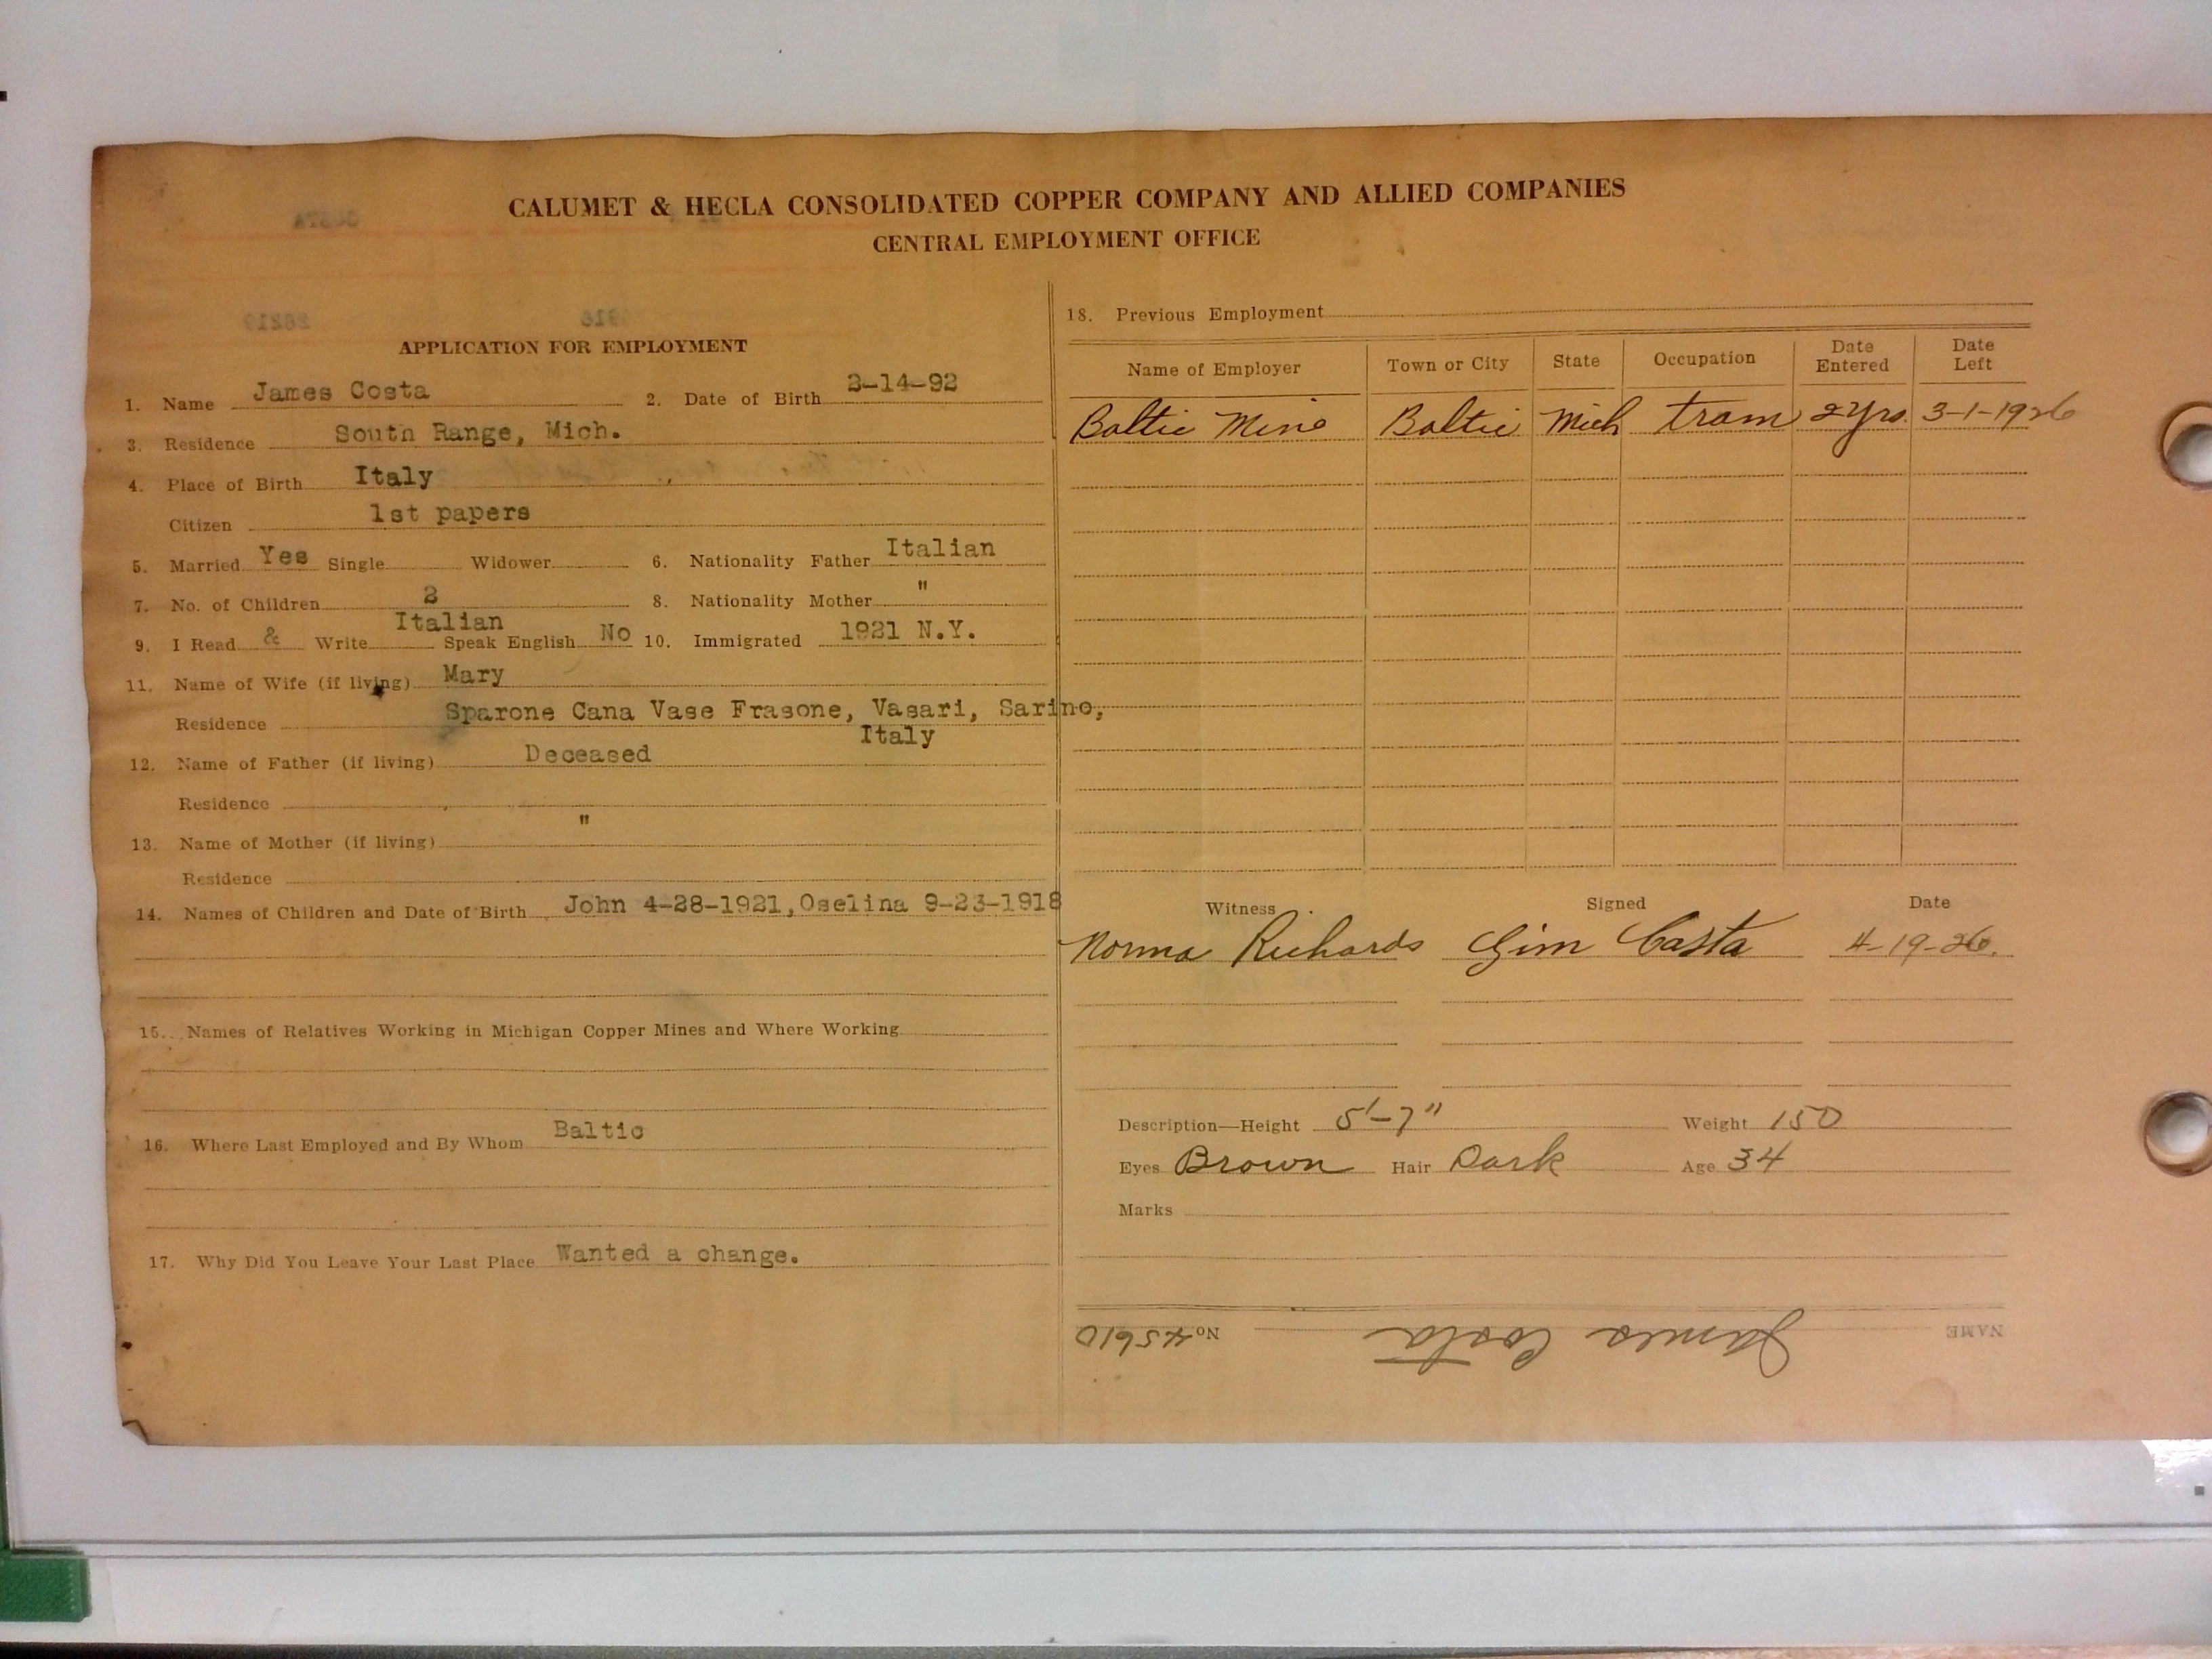 CALUMET & HECLA CONSOLIDATED COPPER COMPANY AND ALLIED COMPANIES
CENTRAL EMPLOYMENT OFFICE
APPLICATION FOR EMPLOYMENT
1. Name James Costa 2. Date of Birth 2-14-92
3. Residence South Range, Mich.
4. Place of Birth Italy
Citizen 1st papers
5. Married Yes Single Widower 6. Nationality Father Italian
7. No. of Children 2 8. Nationality Mother "
9. I Read & Write Italian Speak English No 10. Immigrated 1921 N.Y.
11. Name of Wife (if living) Mary
Residence Sparone Cana Vase Frasone, Vasari, Sarino,
Italy
12. Name of Father (if living) Deceased
Residence
13. Name of Mother (if living) "
Residence
14. Names of Children and Date of Birth John 4-28-1921, Oselina 9-23-1918
15. Names of Relatives Working in Michigan Copper Mines and Where Working
16. Where Last Employed and By Whom Baltic
17. Why Did You Leave Your Last Place Wanted a change.
18. Previous Employment
Name of Employer Town or City State Occupation Date Entered Date Left
Baltic Mine Baltic Mich tram 2 yrs. 3-1-1926
Witness Signed Date
Norma Richards Gim Costa 4-19-26.
Description—Height 5'-7" Weight 150
Eyes Brown Hair Dark Age 34
Marks
NAME James Costa No 45610